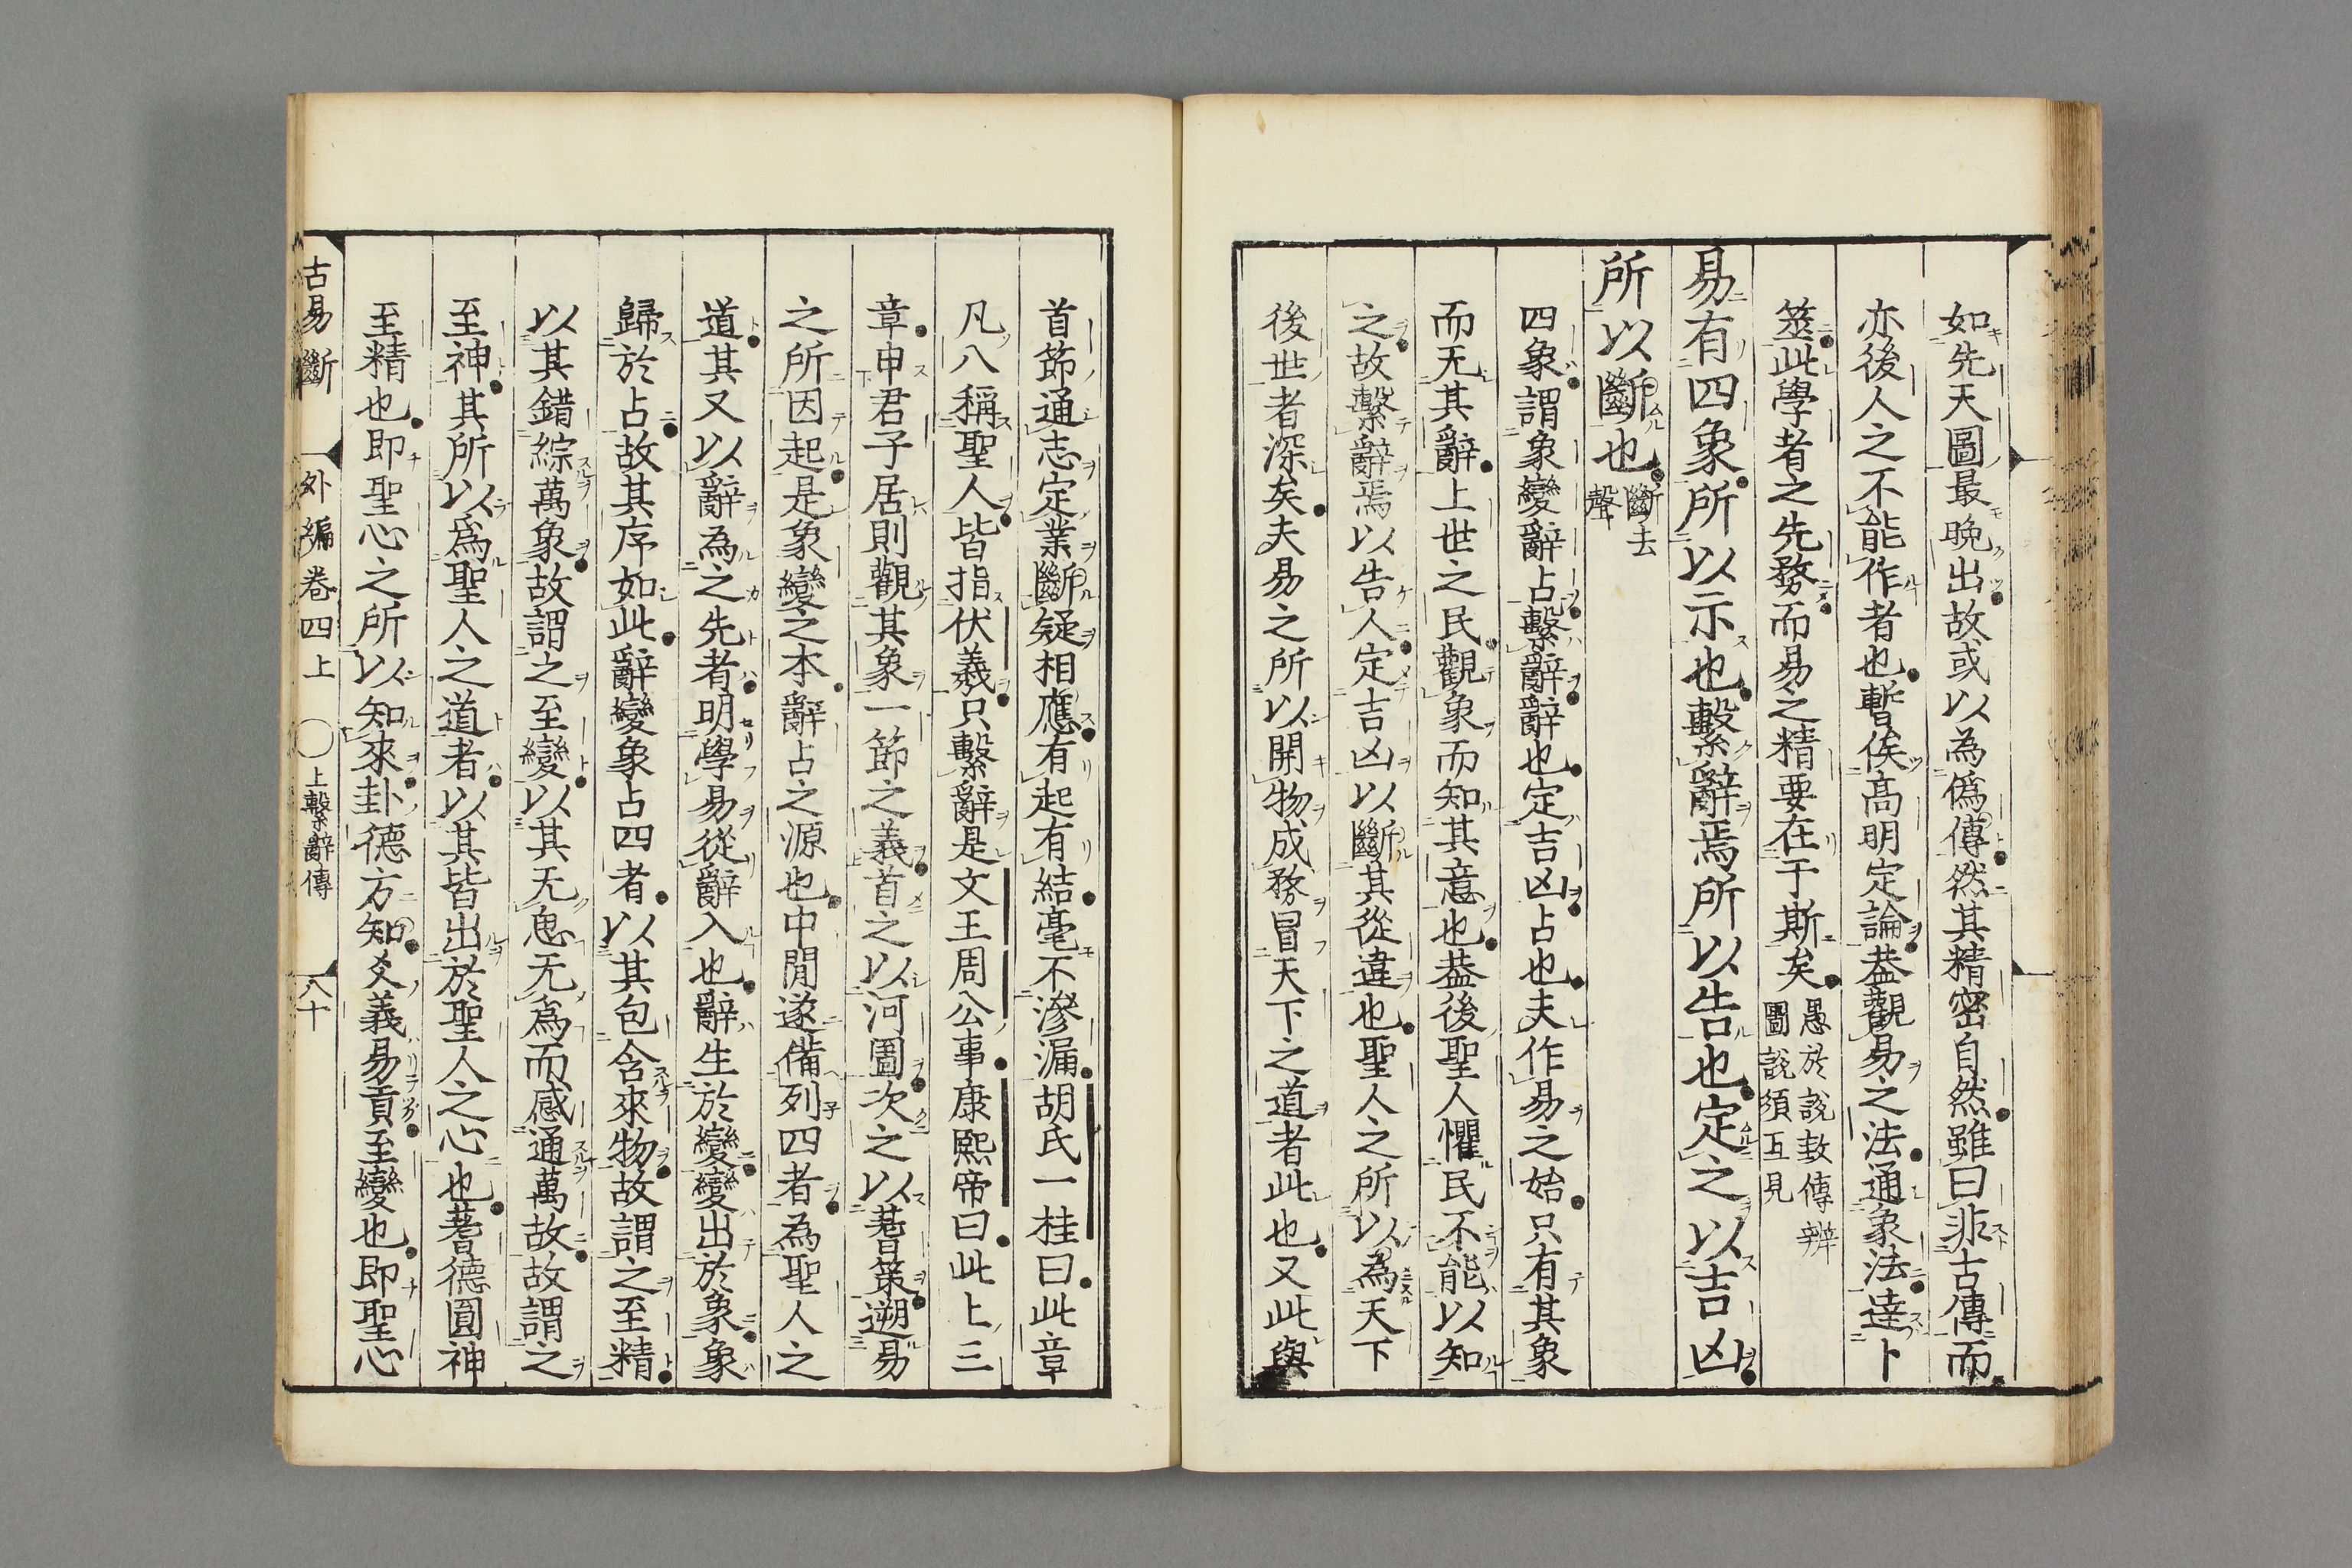 如先天圖最晩出故或以為偽傳然其精密自然雖曰非古傳而
亦後人之不能作者也暫俟高明定論蓋觀易之法通象法達卜
筮此學者之先務而易之精要在于斯矣
愚於說卦傳辨
圖說須互見
易有四象所以示也繫辭焉所以告也定之以吉凶
所以斷也
斷去
聲
四象謂象變辭占繫辭辭也定吉凶占也夫作易之始只有其象
而无其辭上世之民觀象而知其意也蓋後聖人懼民不能以知
之故繫辭焉以告人定吉凶以斷其從違也聖人之所以為天下
後世者深矣夫易之所以開物成務冒天下之道者此也又此與
首節通志定業斷疑相應有起有結毫不滲漏胡氏一桂曰此章
凡八稱聖人皆指伏羲只繫辭是文王周公事康熙帝曰此上三
章申君子居則觀其象一節之義首之以河圖次之以蓍策遡易
之所因起是象變之本辭占之源也中間遂備列四者為聖人之
道其又以辭為之先者明學易從辭入也辭生於變變出於象象
歸於占故其序如此辭變象占四者以其包含來物故謂之至精
以其錯綜萬象故謂之至變以其无思无爲而感通萬故故謂之
至神其所以爲聖人之道者以其皆出於聖人之心也蓍德圓神
至精也即聖心之所以知來卦德方知爻義易貢至變也即聖心
古易斷　外編卷四上　〇上繫辭傳　八十